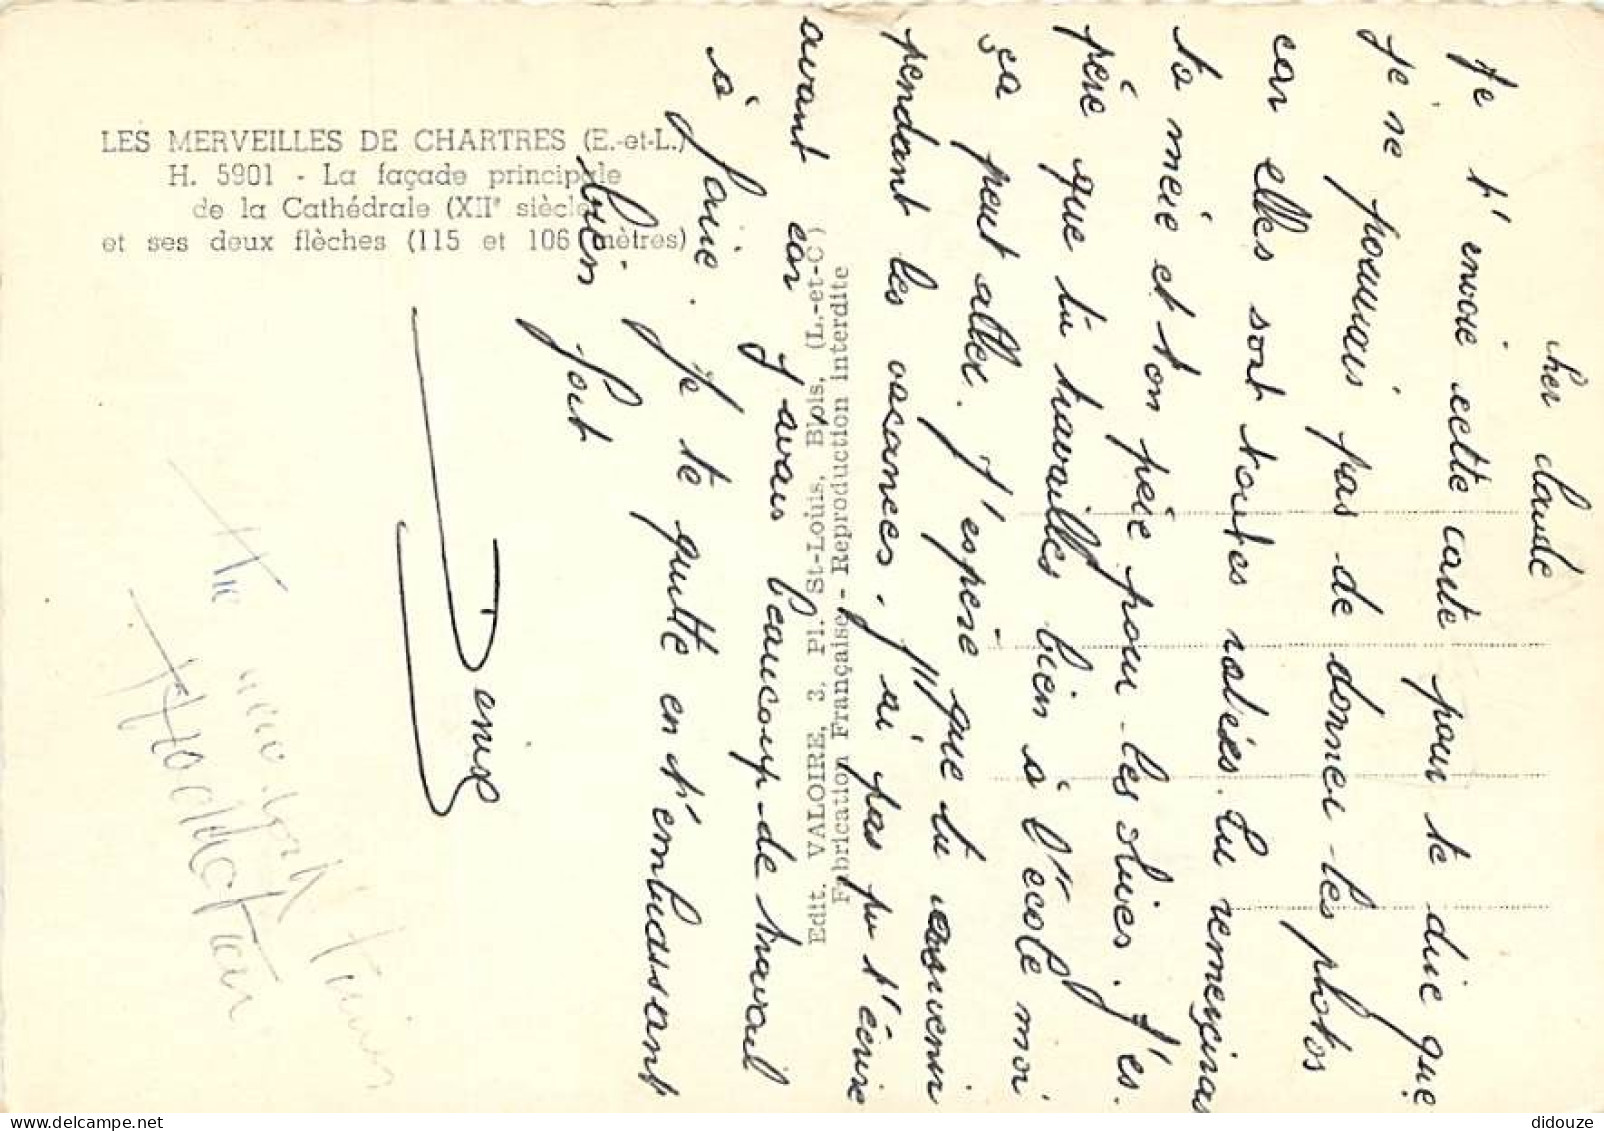 LES MERVEILLES DE CHARTRES (E.-et-L.)
H. 5901 - La façade principale
de la Cathédrale (XIIe siècle)
et ses deux flèches (115 et 106 mètres)
Edit. VALOIRE, 3, Pl. St-Louis, Blois, (L.-et-C)
Fabrication Française - Reproduction interdite
cher claude
Je t'envoie cette carte pour te dire que
je ne pouvais pas de donner les photos
car elles sont toutes ratées. Tu remerciras
ta mère et ton père pour les olives. J'es-
père que tu travailles bien à l'école moi
ça peut aller. J'espère que tu
pendant les vacances, je n'ai pas pu t'écrire
avant car j'avais beaucoup de travail
à faire. Je te quitte en t'embrassant
bien fort
Denise